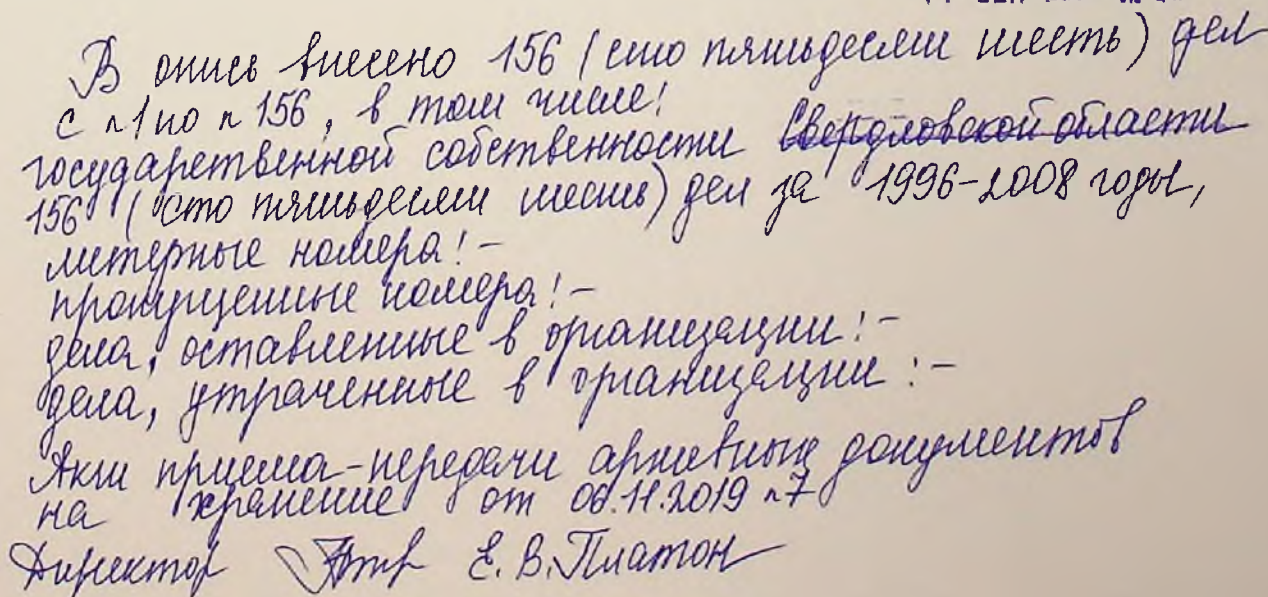 В опись внесено 156 (сто пятьдесят шесть) дел
с №1 по №156, в том числе:
государственной собственности Свердловской области
156 (сто пятьдесят шесть) дел за 1996-2008 годы,
литерные номера: -
пропущенные номера: -
дела, оставленные в организации: -
дела, утраченные в организации: -
Акт приема-передачи архивных документов
на хранение от 06.11.2019 №7
Директор Е. В. Платон